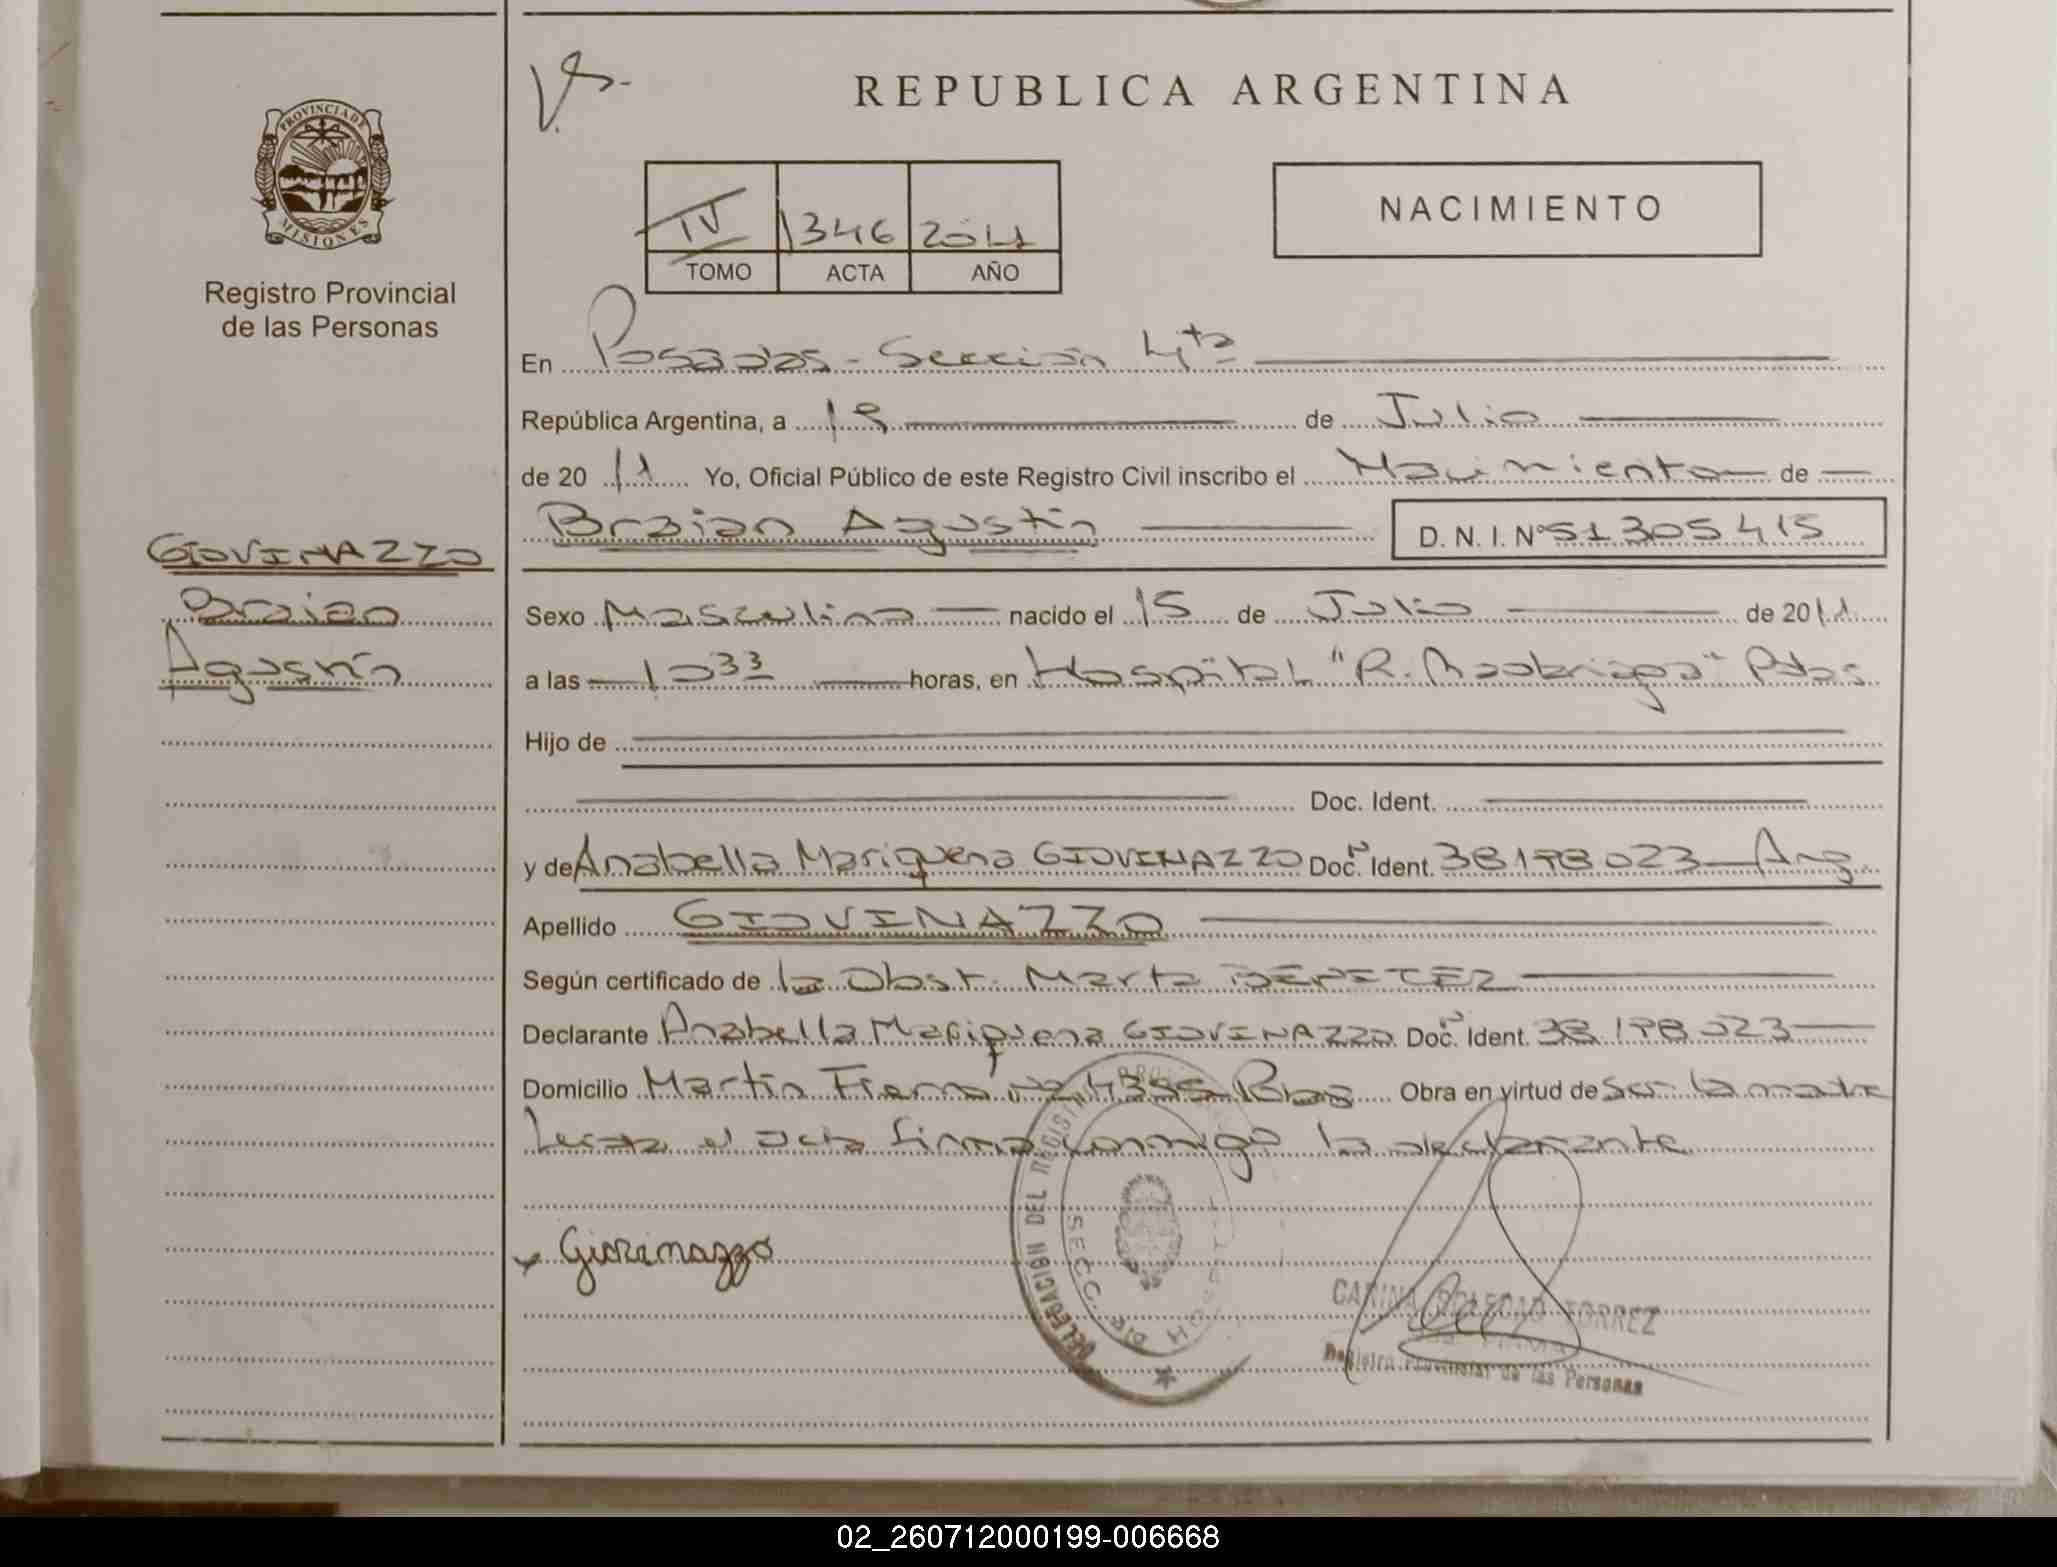 PROVINCIA DE
MISIONES
Registro Provincial
de las Personas
GIOVINAZZO
Braian
Agustín
REPUBLICA ARGENTINA
NACIMIENTO
IV 1346 2011
TOMO ACTA AÑO
En Posadas - Sección 4ta
República Argentina, a 19 de Julio
de 20 11 Yo, Oficial Público de este Registro Civil inscribo el Nacimiento de
Braian Agustín D. N. I. Nº 51305415
Sexo Masculino nacido el 15 de Julio de 2011
a las 10 33 horas, en Hospital "R. Madariaga" Pdas
Hijo de
Doc. Ident.
y de Anabella GIOVINAZZO Doc. Ident. 38198023 Arg.
Apellido GIOVINAZZO
Según certificado de la Obst. Marta BENITEZ
Declarante Anabella GIOVINAZZO Doc. Ident. 38198023
Domicilio Martín Fierro Pdas Obra en virtud de ser la madre
Leída el acta firma conmigo la declarante
Giovinazzo
DELEGACION DEL
SECC.
CARINA SOLEDAD TORREZ
Registro Provincial de las Personas
02_260712000199-006668